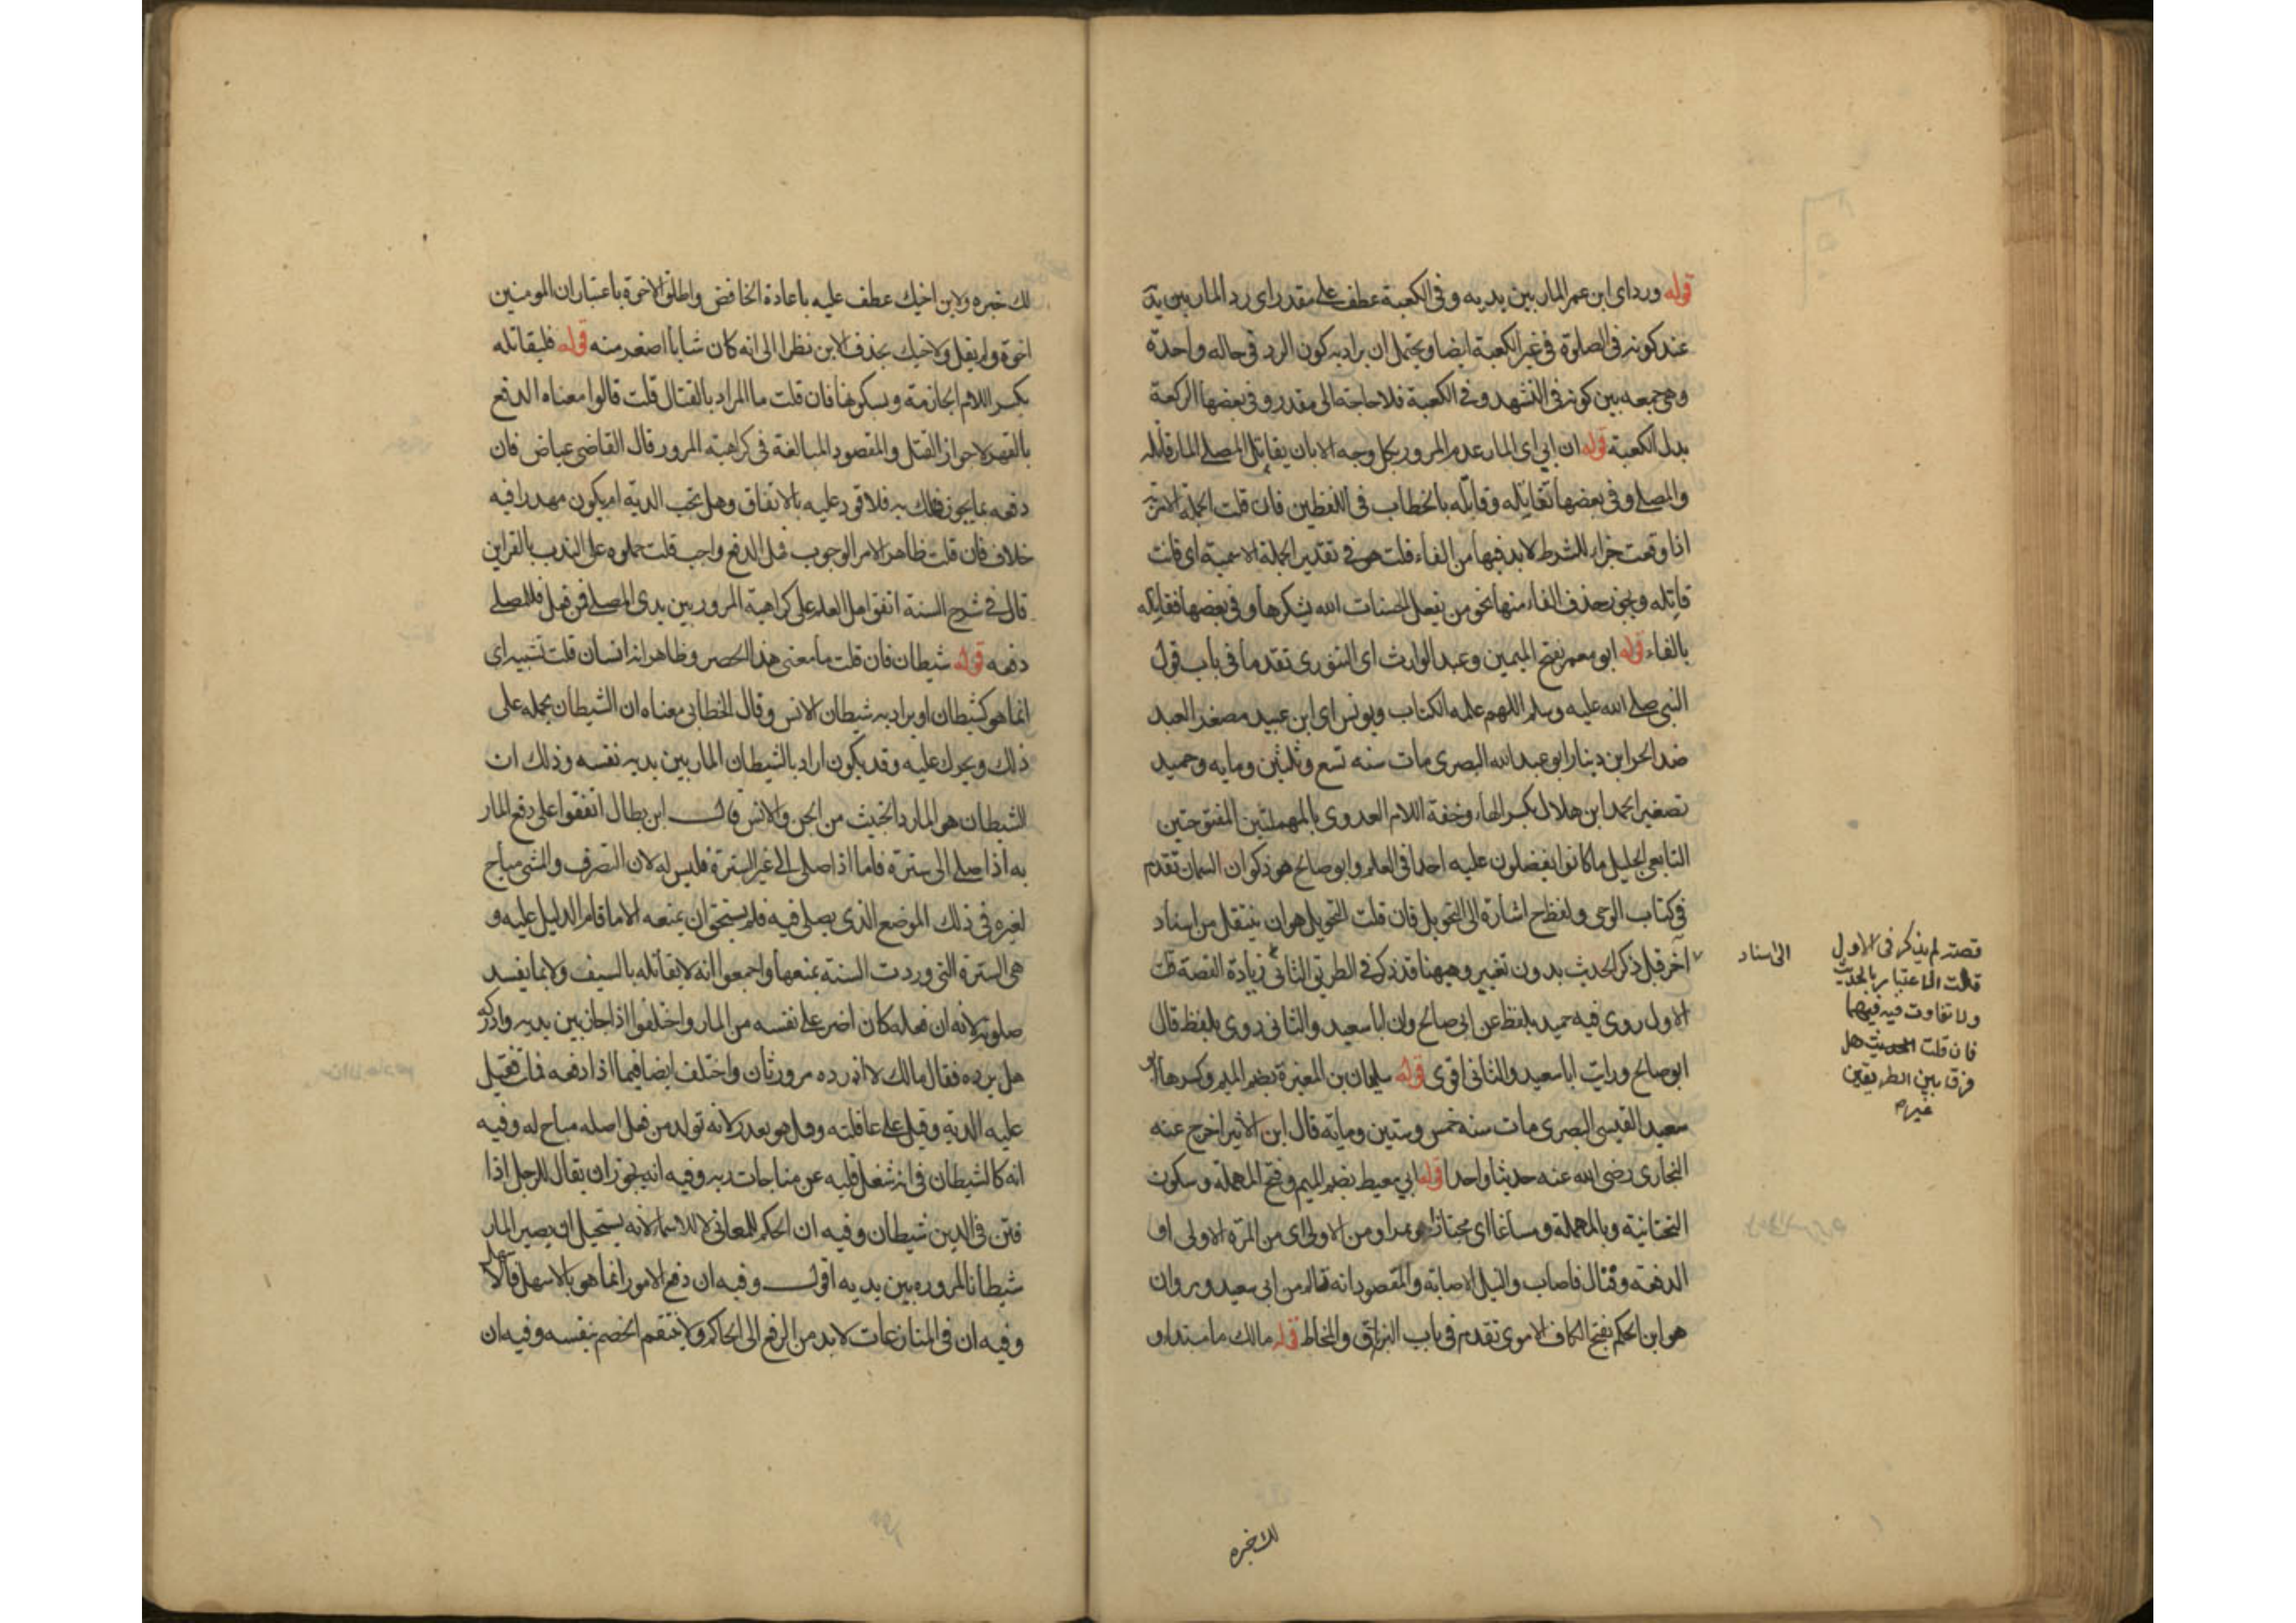 قوله ورد اى ابن عمر المار بين يديه وفى الكعبة عطف على مقدر اى رد المار بين يديه
عند كونه فى الصلوة فى غير الكعبة ايضا ويحتمل ان يراد به كون الرد فى حاله واحدة
وهى جمعه بين كونه فى التشهد وفى الكعبة فلا حاجة الى مقدر وفى بعضها الركعة
بدل الكعبة قوله ان ابى اى المار عدم المرور بكل وجه الا بان يقاتل المصلى المار قاتله
والمصلى وفى بعضها تقاتله وقاتله بالخطاب فى اللفظين فان قلت الجملة الامرية
اذا وقعت جزاء للشرط لابد فيها من الفاء قلت هو فى تقدير الجملة الاسمية اى فانت
قاتله ويجوز حذف الفاء منها نحو من يفعل الحسنات الله يشكرها وفى بعضها فقاتله
بالفاء قوله ابو معمر بفتح الميمين وعبد الوارث اى التنورى تقدما فى باب قول
النبى صلى الله عليه وسلم اللهم علمه الكتاب ويونس اى ابن عبيد مصغر العبد
ضد الحر ابن دينار ابو عبد الله البصرى مات سنه تسع وثلثين ومايه وحميد
تصغير الحمد ابن هلال بكسر الهاء وخفة اللام العدوى بالمهملتين المفتوحتين
التابعى الجليل ما كانوا يفضلون عليه احدا فى العلم وابو صالح هو ذكوان السمان تقدم
فى كتاب الوحى ولفظ ح اشارة الى التحويل فان قلت التحويل هو ان ينتقل من اسناد
الى اسناد
آخر قبل ذكر الحديث بدون تغيير وههنا قد ذكر فى الطريق الثانى زيادة القصة قلت
قصته لم يذكر فى الاول
قلت الاعتبار بالحديث
ولا تفاوت فيه فيهما
فان قلت الحديث هل
فرق بين الطريقين
غيره
الاول روى فيه حميد بلفظ عن ابى صالح وان ابا سعيد والثانى روى بلفظ قال
ابو صالح ورايت ابا سعيد والثانى اقوى قوله سليمان بن المغيرة بضم الميم وكسرها ابو
سعيد القيسى البصرى مات سنه خمس وستين وماية قال ابن الاثير اخرج عنه
البخارى رضى الله عنه حديثا واحدا قوله ابى معيط بضم الميم وفتح المهملة وسكون
التحتانية وبالمهملة ومساغا اى مجتازا هو ممرا ومن الاولى اى من المرة الاولى او
الدفعة وقتال فاصاب والنيل الاصابة والمقصود انه تالم من ابى سعيد ومروان
هو ابن الحكم بفتح الكاف الاموى تقدم فى باب البزاق والمخاط قوله مالك ما مبتداء و
لك خبره
لك خبره ولابن اخيك عطف عليه باعادة الخافض واطلق الاخوة باعتبار ان المومنين
اخوة ولم يقل ولاخيك بحذف الابن نظرا الى انه كان شابا اصغر منه قوله فليقاتله
بكسر اللام الجازمة وبسكونها فان قلت ما المراد بالقتال قلت قالوا معناه الدفع
بالقهر لا جواز القتل والمقصود المبالغة فى كراهية المرور قال القاضى عياض فان
دفعه بما يجوز فهلك به فلا قود عليه بالاتفاق وهل تجب الدية ام يكون مهدرا فيه
خلاف فان قلت ظاهر الامر الوجوب فهل الدفع واجب قلت حملوه على الندب بالقراين
قال فى شرح السنة اتفق اهل العلم على كراهية المرور بين يدى المصلى فمن فعل فللمصلى
دفعه قوله شيطان فان قلت ما معنى هذا الحصر وظاهر انه انسان قلت تشبيه اى
انما هو كشيطان او يراد به شيطان الانس وقال الخطابى معناه ان الشيطان يحمله على
ذلك ويحرك عليه وقد يكون اراد بالشيطان المار بين يديه نفسه وذلك ان
الشيطان هو المارد الخبيث من الجن والانس قال ابن بطال اتفقوا على دفع المار
به اذا صلى الى سترة فاما اذا صلى الى غير السترة فليس له لان التصرف والمشى مباح
لغيره فى ذلك الموضع الذى يصلى فيه فلم يستحق ان يمنعه الا ما قام الدليل عليه و
هى السترة التى وردت السنة بمنعها واجمعوا انه لا يقاتله بالسيف ولا بما يفسد
صلوته لانه ان فعله كان اضر على نفسه من المار واختلفوا اذا جاز بين يديه وادركه
هل يرده فقال مالك لا اذ رده مرور ثان واختلف ايضا فيما اذا دفعه فمات فقيل
عليه الدية وقيل على عاقلته وقيل هو هدر لانه تولد من فعل اصله مباح له وفيه
انه كالشيطان فى انه شغل قلبه عن مناجات ربه وفيه انه يجوز ان يقال للرجل اذا
فتن فى الدين شيطان وفيه ان الحكم للمعانى لا للاسماء لانه يستحيل ان يصير المار
شيطانا لمروره بين يديه اقول وفيه ان دفع الامور انما هو بالاسهل فالاسهل
وفيه ان فى المنازعات لابد من الرفع الى الحاكم ولا ينتقم الخصم بنفسه وفيه ان